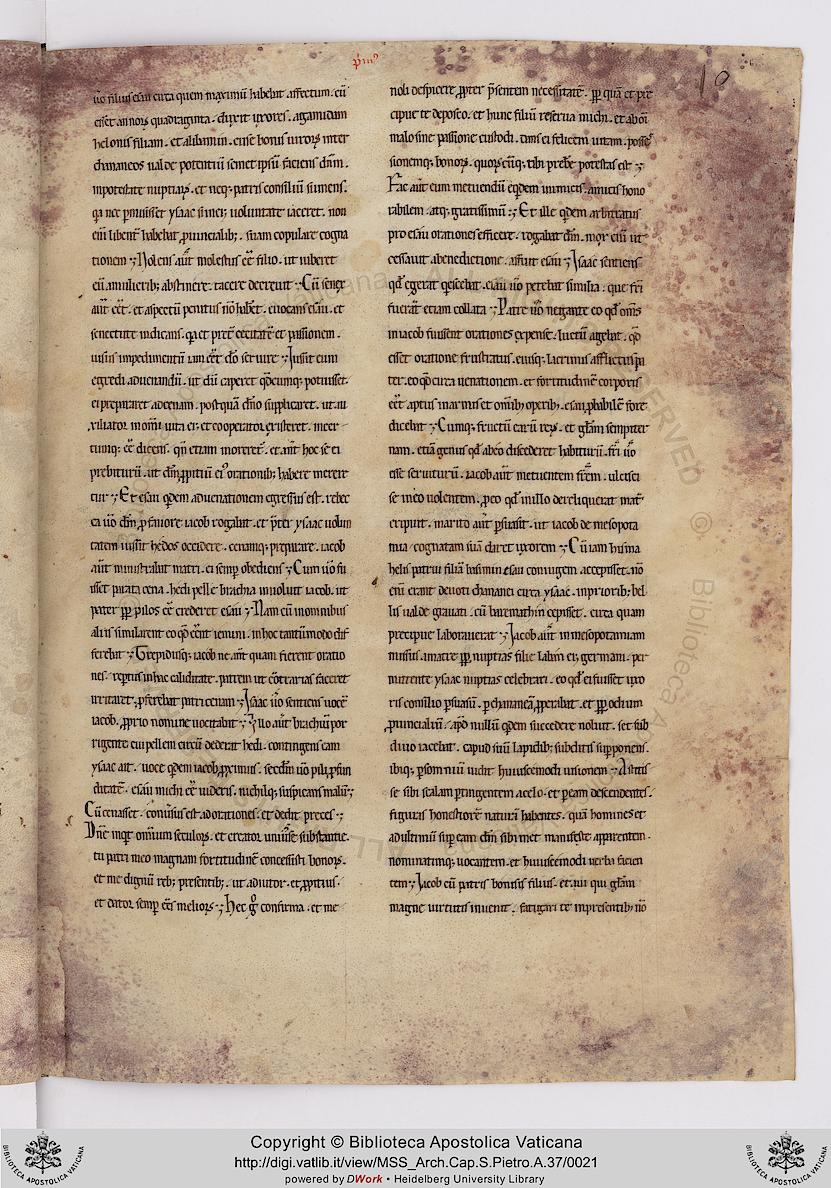 p̄m⁹
10
uo filius esau circa quem maximū habebat affectum. cū
esset annoꝝ quadraginta. duxit uxores. agamidam
helonis filiam. et alibamin. eusebonis uiroꝝ inter
chananeos ualde potentiū semet ipsū faciens dn̄m.
inpotestate nuptiaꝝ. et neq; patris consiliū sumens.
q̄a nec ꝑmisisset ysaac si in ei; uoluntate iaceret. non
eni libent̄ habebat ꝓuincialib; suam copulare cogna
tionem ⁊ Nolens aut̄ molestus eē filio. ut iuberet
eū amulierib; abstinere. tacere decreuit ⁊ Cū senex
aut̄ eēt. et aspectū penitus nō habēt. euocans esau. et
senectute indicans. q̄a et pret̄ cecitatē et passionem.
uisus impedimentū iam eēt dō seruire ⁊ Iussit eum
egredi aduenandū. ut dū caperet q̄dcumq; potuisset.
ei prepararet adcenam. postquā dn̄o supplicaret. ut au
xiliator in om̄i uita ei; et cooperator existeret. incer
tumq; eē dicens. qn̄ etiam moreret̄. et ant̄ hoc se ei
prebiturū. ut dn̄m ꝓpitiū ei⁹ orationib; habere merere
tur ⁊ Et esau q̄dem aduenationem egressus est. rebec
ca uō dn̄m ꝓ fauore iacob rogabat. et p̄ter ysaac uolun
tatem iussit hedos occidere. cenamq; preparare. iacob
aut̄ ministrabat matri. ei semp̄ obediens ⁊ Cum uō fu
isset parata cena. hedi pelle brachia inuoluit iacob. ut
pater ꝓp̄ pilos eē crederet esau ⁊ Nam cū in omnibus
aliis similarent eo qd̄ cēnt iemini. in hoc tantūmodo dif
ferebat ⁊ Trepidusq; iacob ne ant̄ quam fierent oratio
nes. reptus in hac caliditate. patrem ut cōtrarias faceret
irritaret. ꝓferebat patri cenam ⁊ Isaac uō sentiens uocē
iacob. ꝓprio nomine uocitabat ⁊ Illo aut̄ brachiū por
rigente cui pellem circū dederat hedi. contingens eam
ysaac ait. uoce q̄dem iacob ꝓximus. secdm̄ uō pili ꝓfun
ditatē. esau michi eē uideris. nichilq; suspicans malū ⁊
Cū cenasset. conuersus est ad orationes. et dedit preces ⁊
Dn̄e inq̄t omnium seculoꝝ. et creator uniūse substantie.
tu patri meo magnam fortitudinē concessisti bonoꝝ.
et me dignū reb; presentib;. ut adiutor. et ꝓpitius.
et dator semp̄ ees melioꝝ ⁊ Hec ḡo confirma. et me
noli despicere ꝓpter p̄sentem necessitatē. ꝓp̄ quā et pre
cipue te deposco. et hunc filiū reserua michi. et ab om̄i
malo sine passione custodi. dans ei felicem uitam. posses
sionemq; bonoꝝ. quoꝝcūq; tibi prebē potestas est ⁊
Fac aut̄ eum metuendū eq̄dem inimicis. amicis hono
rabilem. atq; gratissimū ⁊ Et ille q̄dem arbitratus
pro esau orationes efficere. rogabat dn̄m. mox cū ut
cessauit abenedictione. affuit esau ⁊ Isaac sentiens
qd̄ egerat q̄escebat. esau uō petebat similia. que fr̄i
fuerāt etiam collata ⁊ Patre uō negante eo qd̄ om̄s
in iacob fuissent orationes expense. luctū agebat. qd̄
esset oratione frustratus. eiusq; lacrimis afflictus pa
ter. eo qd̄ circa uenationem. et fortitudinē corporis
eēt aptus in armis et om̄ib; operib;. esau ꝓbabilē fore
dicebat ⁊ Cumq; fructū earū reꝝ. et gl̄am sempiter
nam. etiā genus qd̄ ab eo discederet habiturū. fr̄i uō
esse seruiturū. iacob aut̄ metuentem fr̄em. ulcisci
se in eo uolentem. ꝓ eo qd̄ in illo dereliquerat mat̄
eripuit. marito aut̄ ꝑsuasit. ut iacob de mesopota
mia cognatam suā daret uxorem ⁊ Cū iam hisma
helis patrui filiā basimin esau coniugem accepisset. nō
enī erant deuoti chananei circa ysaac. in priorib; bel
lis ualde grauati. cū baremathin cepisset. circa quam
precipue laborauerat ⁊ Iacob aut̄ in mesopotamiam
missus. amatre ꝓp̄ nuptias filie laban ei; germani. per
mittente ysaac nuptias celebrari. eo qd̄ ei fuisset uxo
ris consilio ꝑsuasū. ꝑ chananeā ꝓperabat. et ꝓp̄ odium
ꝓuincialiū. apd̄ nullū q̄dem succedere uoluit. set sub
diuo iacebat. capud suū lapidib; subditis suꝑponens.
ibiq; ꝑ somniū uidit huiuscemodi uisionem ⁊ Astitis
se sibi scalam ꝑtingentem acelo. et ꝑ eam descendentes.
figuras honestiorē naturā habentes. quā homines et
ad ultimū suꝑ eam dn̄m sibimet manifeste apparentem.
nominatimq; uocantem. et huiuscemodi uerba facien
tem ⁊ Iacob cū patris boni sis filius. et aui qui gl̄am
magne uirtutis inuenit. fatigari te in presentib; nō
Copyright © Biblioteca Apostolica Vaticana
http://digi.vatlib.it/view/MSS_Arch.Cap.S.Pietro.A.37/0021
powered by DWork • Heidelberg University Library